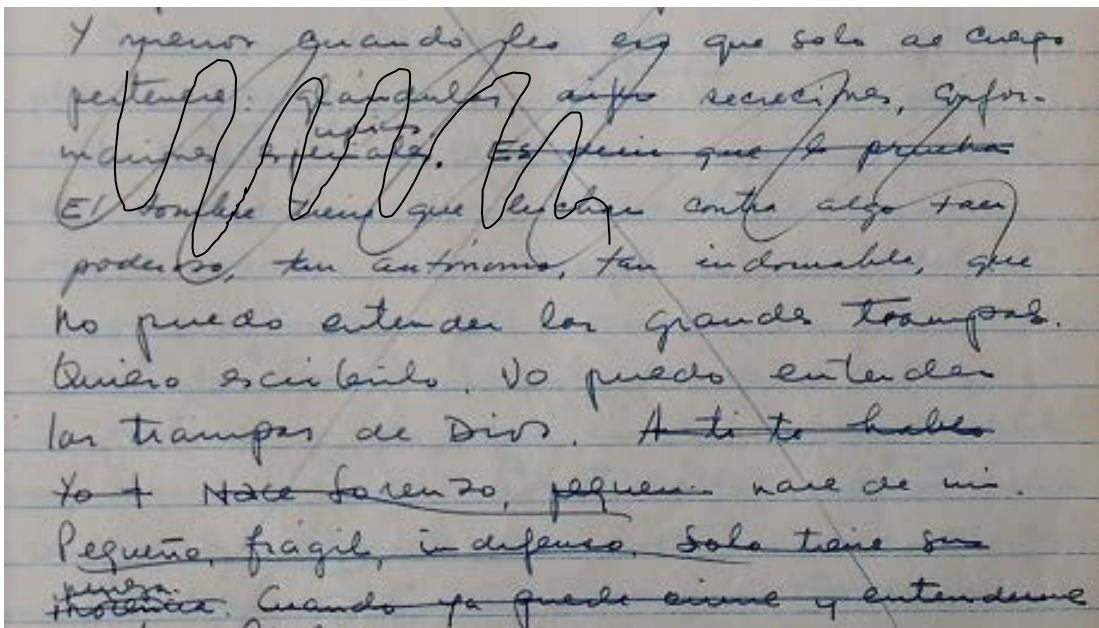 Y menos cuando les es que solo al cuerpo
pertenece: glándulas, secreciones, confor-
maciones especiales. Es decir que la prueba
El hombre tiene que luchar contra algo tan
poderoso, tan autónomo, tan indomable, que
no puedo entender las grandes trampas.
Quiero escribirlo. No puedo entender
las trampas de Dios. A ti te hablo
Yo + Nace Lorenzo, pequeñ nace de mi.
Pequeño, frágil, indefenso. Solo tiene su
inocencia. Cuando ya puede oirme y entenderme